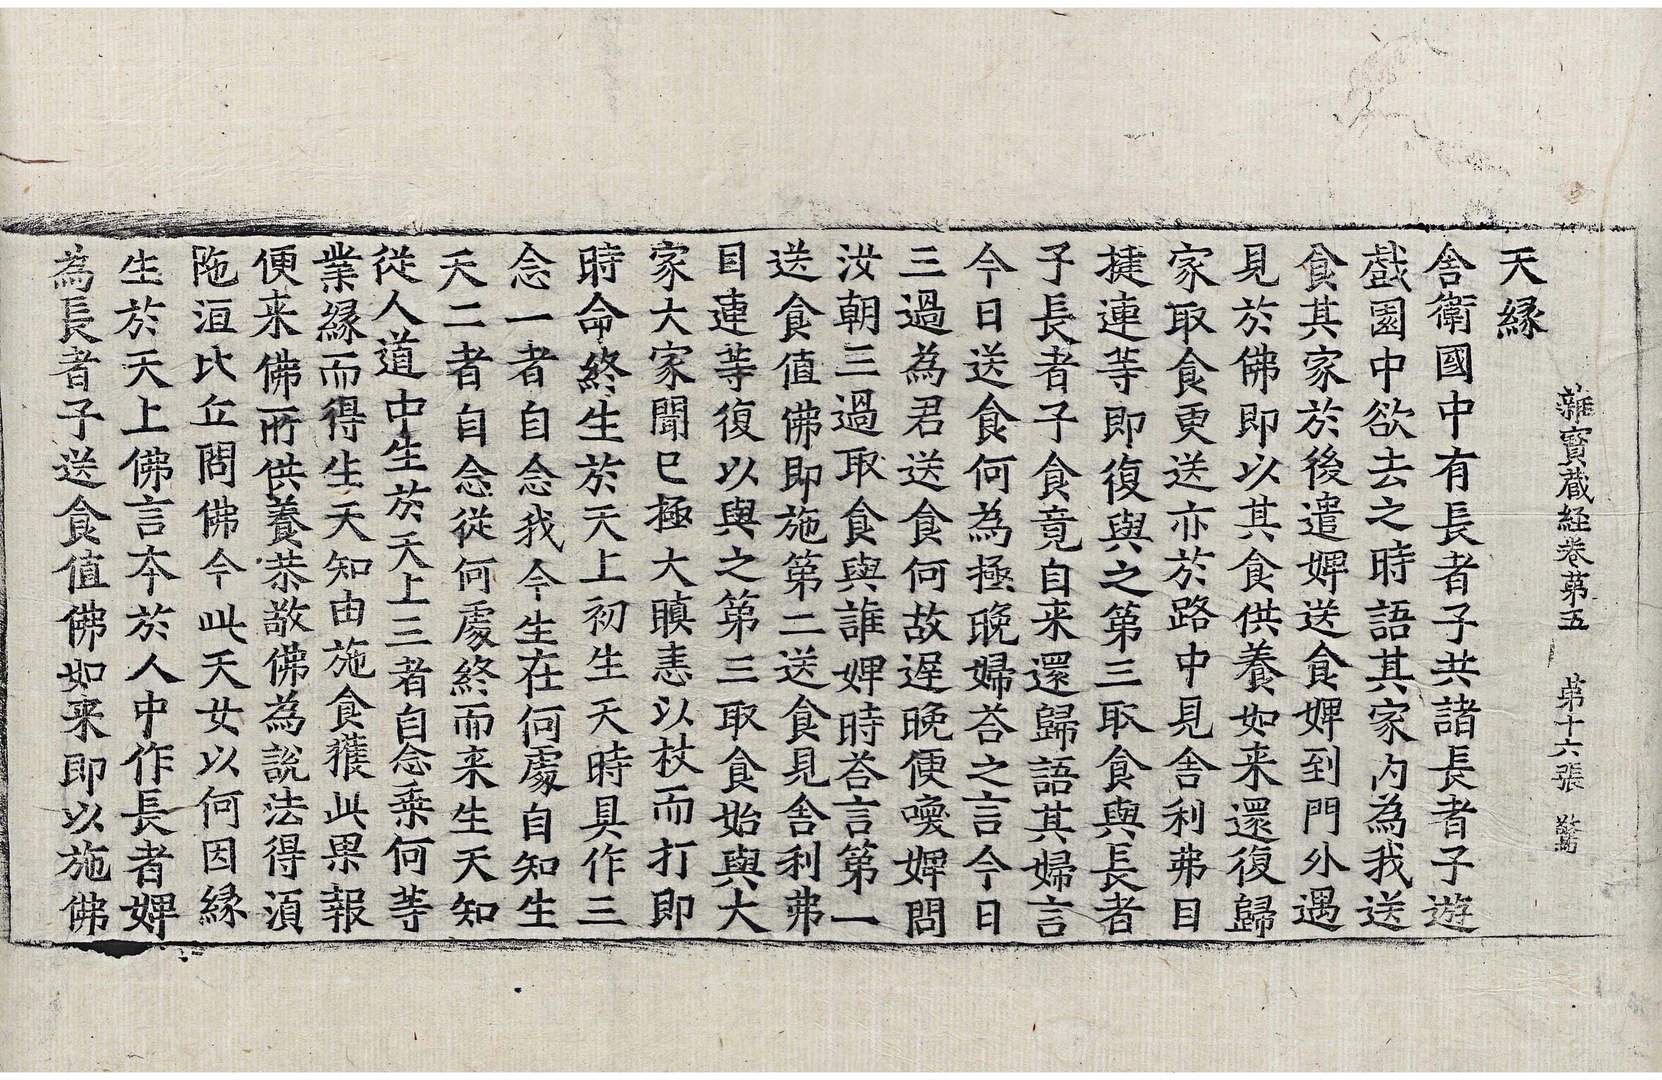 雜寶蔵経卷苐五 苐十六張 驚
天縁
舎衛國中有長者子共諸長者子遊
戲園中欲去之時語其家内為我送
食其家於後遣婢送食婢到門外遇
見於佛即以其食供養如来還復歸
家取食更送亦於路中見舎利弗目
揵連等即復與之第三取食與長者
子長者子食竟自来還歸語其婦言
今日送食何為極晩婦荅之言今日
三過為君送食何故遅晩便喚婢問
汝朝三過取食與誰婢時荅言第一
送食值佛即施第二送食見舎利弗
目連等復以與之第三取食始與大
家大家聞已極大瞋恚以杖而打即
時命終生於天上初生天時具作三
念一者自念我今生在何處自知生
天二者自念從何處終而来生天知
從人道中生於天上三者自念乗何等
業縁而得生天知由施食獲此果報
便来佛所供養恭敬佛為說法得湏
陁洹比丘問佛今此天女以何因縁
生於天上佛言夲於人中作長者婢
為長者子送食值佛如来即以施佛